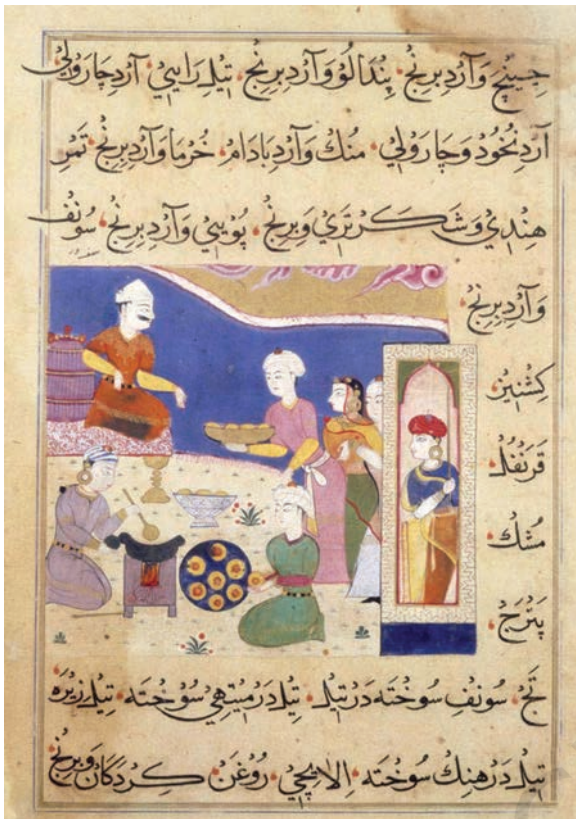 چینچ وَآردِ بِرِنج، پِندَالُو وَآردِ بِرِنج، تیلِ رَایِي، آردِ چَارولِي
آردِ نَخُود وَچَارَولِي، مُنك وَآردِ بَادَامُ، خُرمَا وَآردِ بِرِنج، تَمرِ
هِندِي وَشَكَرتَرِي وَبِرِنج، پُویِي وَآردِ بِرِنج، سُونف
وَآردِ بِرِنج،
كِشنِیز
قَرَنفُلُ
مُشك
پَترَج،
تَج، سُونفِ سُوختَه دَر تِیل، تِیل دَر مِیتهِي سُوختَه، تِیل زِیرَه
تِیل دَر هِنك سُوختَه، اِلَایچِي، رُوغَن كِردَكَان وَبِرِنج